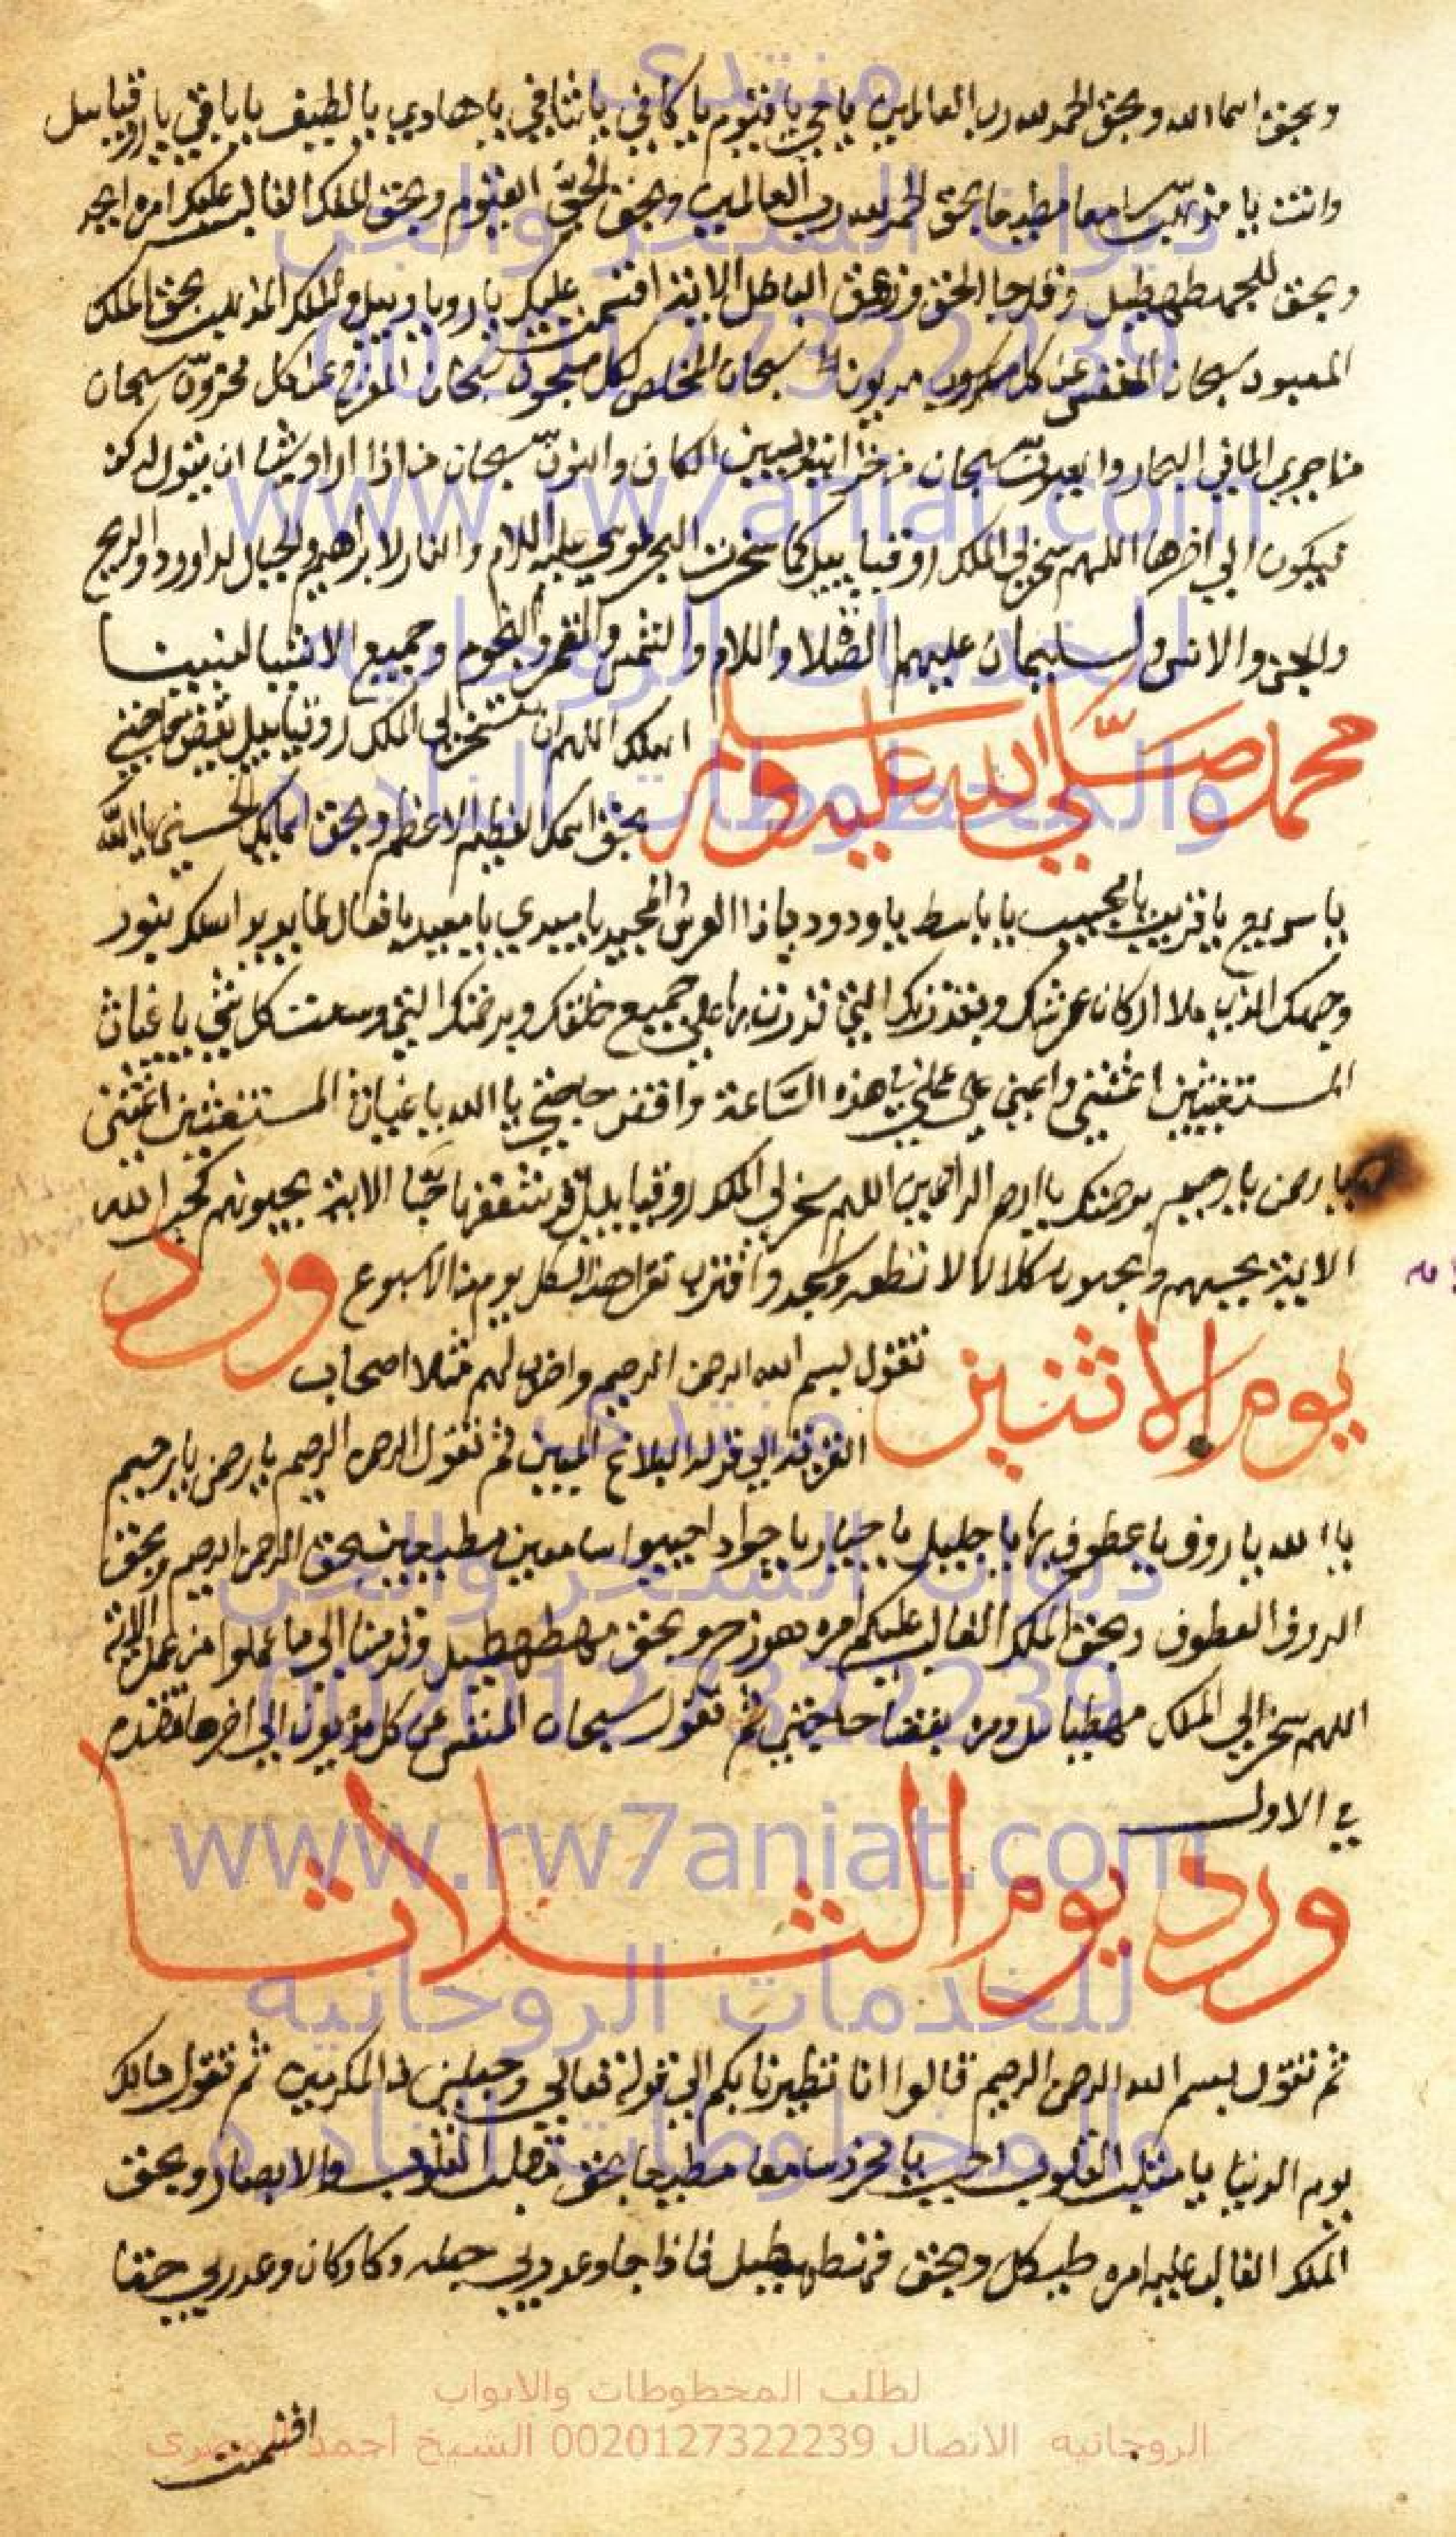 وبحق اسما الله وبحق الحمد لله رب العالمين يا حي يا قيوم يا كافي يا شافي يا هادي يا لطيف يا باقي يا روقيا بيل
وانت يا مذهب سامعا مطيعا بحق الحمد لله رب العالمين وبحق الحي القيوم وبحق الملك الغالب عليك امره ابجد
وبحق للجمهطهطيل وقل جا الحق وزهق الباطل الاية اقسمت عليك يا روقيا بيل والملك المذهب بحق الملك
المعبود سبحان المنفس عن كل مديون سبحان المخلص لكل مسجون سبحان المفرج عن كل محزون سبحان
من اجري الما في البحار والعيون سبحان من خزاينه بين الكاف والنون سبحان من اذا اراد شيا ان يقول له كن
فيكون الي اخرها اللهم سخر لي الملك روقيا بيل كما سخرت البحر لموسي عليه السلام والنار لابراهيم والجبال لداوود والريح
والجن والانس لسليمان عليهما الصلاة والسلام والشمس والقمر والنجوم وجميع الاشيا لنبينا
محمد صلي الله عليه وسلم
اسلك اللهم ان تسخر لي الملك روقيا بيل بقضا حاجتي
بحق اسمك العظيم الاعظم وبحق اسمايك الحسني يا الله
يا سريع يا قريب يا مجيب يا باسط يا ودود يا ذا العرش المجيد يا مبدي يا معيد يا فعال لما يريد اسلك بنور
وجهك الذي ملا اركان عرشك وبقدرتك التي قدرت بها علي جميع خلقك وبرحمتك التي وسعت كل شي يا غياث
المستغيثين اغثني واعني علي عملي هذه الساعة واقض حاجتي يا الله يا غياث المستغيثين اغثني
يا رحمن يا رحيم برحمتك يا ارحم الراحمين اللهم سخر لي الملك روقيا بيل قد شغفها حبا الاية يحبونهم كحب الله
الاية يحبهم ويحبونه كلا لا تطعه واسجد واقترب تقرا هذه لكل يوم من الاسبوع
ورد
يوم الاثنين
تقول بسم الله الرحمن الرحيم واضرب لهم مثلا اصحاب
القرية الي قوله البلاغ المبين ثم تقول الرحمن الرحيم يا رحمن يا رحيم
يا الله يا روف يا عطوف يا جليل يا جبار يا جواد اجيبوا سامعين مطيعين بحق الرحمن الرحيم وبحق
الروف العطوف وبحق الملك الغالب عليكم امره هوزح وبحق مهطهطيل وقدمنا الي ما عملوا من عمل الاية
اللهم سخر لي الملك بقضا حاجتي ثم تقول سبحان المنفس عن كل مديون الي اخرها متقدم
في الاول
ورد يوم الثلاثا
ثم تقول بسم الله الرحمن الرحيم قالوا انا تطيرنا بكم الي قوله تعالي وجعلني من المكرمين ثم تقول مالك
يوم الدين يا مقلب القلوب اجب يا محرز سامعا مطيعا بحق مقلب القلوب والابصار وبحق
الملك الغالب عليه امره طيكل وبحق قهطهطيل فاذا جا وعد ربي جعله دكا وكان وعد ربي حقا
اقسمت
منتدى
ديوان السحر والجن
0020127322239
www.rw7aniat.com
للخدمات الروحانيه
والمخطوطات النادره
منتدى
ديوان السحر والجن
0020127322239
www.rw7aniat.com
للخدمات الروحانيه
والمخطوطات النادره
لطلب المخطوطات والابواب
الروحانيه الاتصال 0020127322239 الشيخ أحمد المصرى